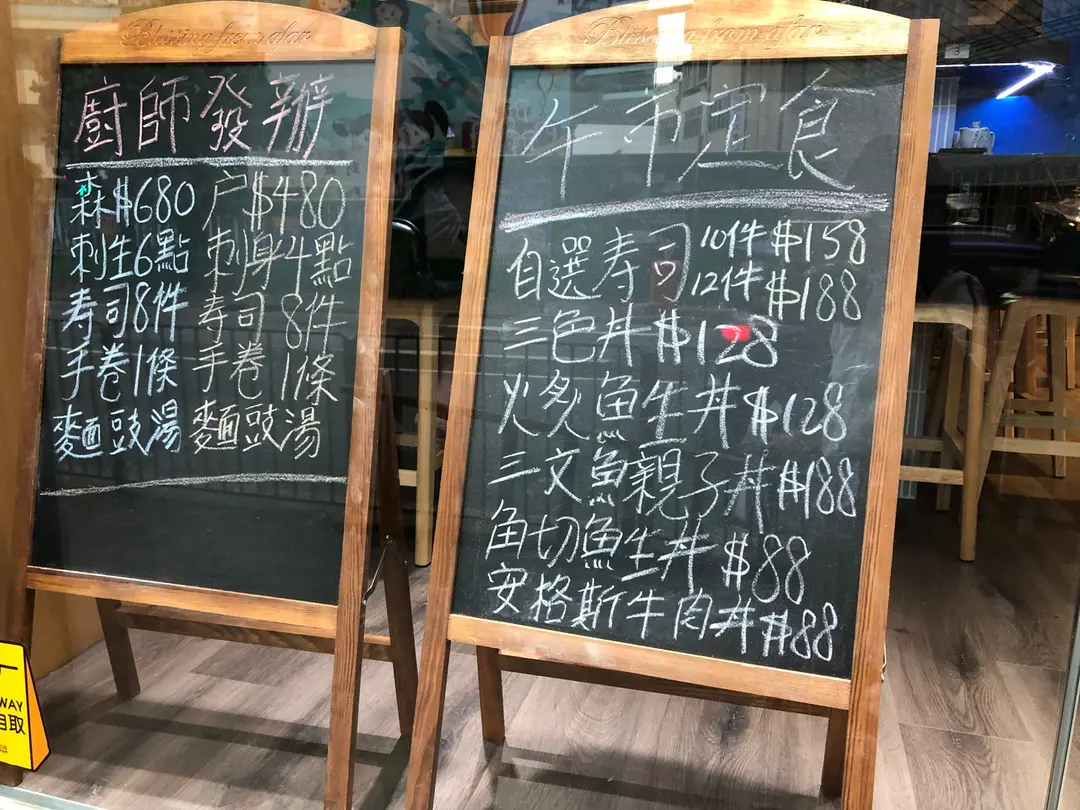 Blessing from afar
廚師發辦
森$680 户$480
刺生6點 刺身4點
寿司8件 寿司8件
手巻1條 手巻1條
麵豉湯 麵豉湯
Blessing from afar
午市定食
自選寿司 10件 $158
12件 $188
三色丼 $128
火炙魚生丼 $128
三文魚親子丼 $188
角切魚生丼 $88
安格斯牛肉丼 $88
WAY
自取
3